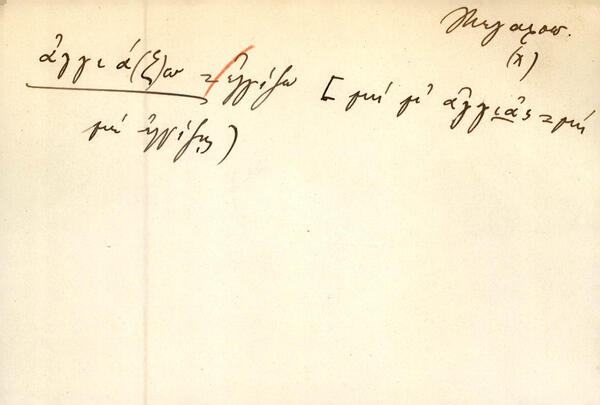 Μεγαροπ.
(χ)
ἀγγιά(ζ)ω = ἐγγίζω [μή μ' ἀγγιᾶς = μή
μέ ἐγγίζῃς)